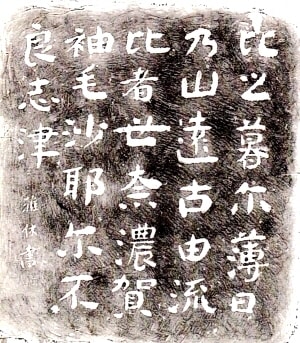 比之暮尔薄日
乃山遠古由流
比者世奈濃賀
袖毛沙耶尔不
良志津
書